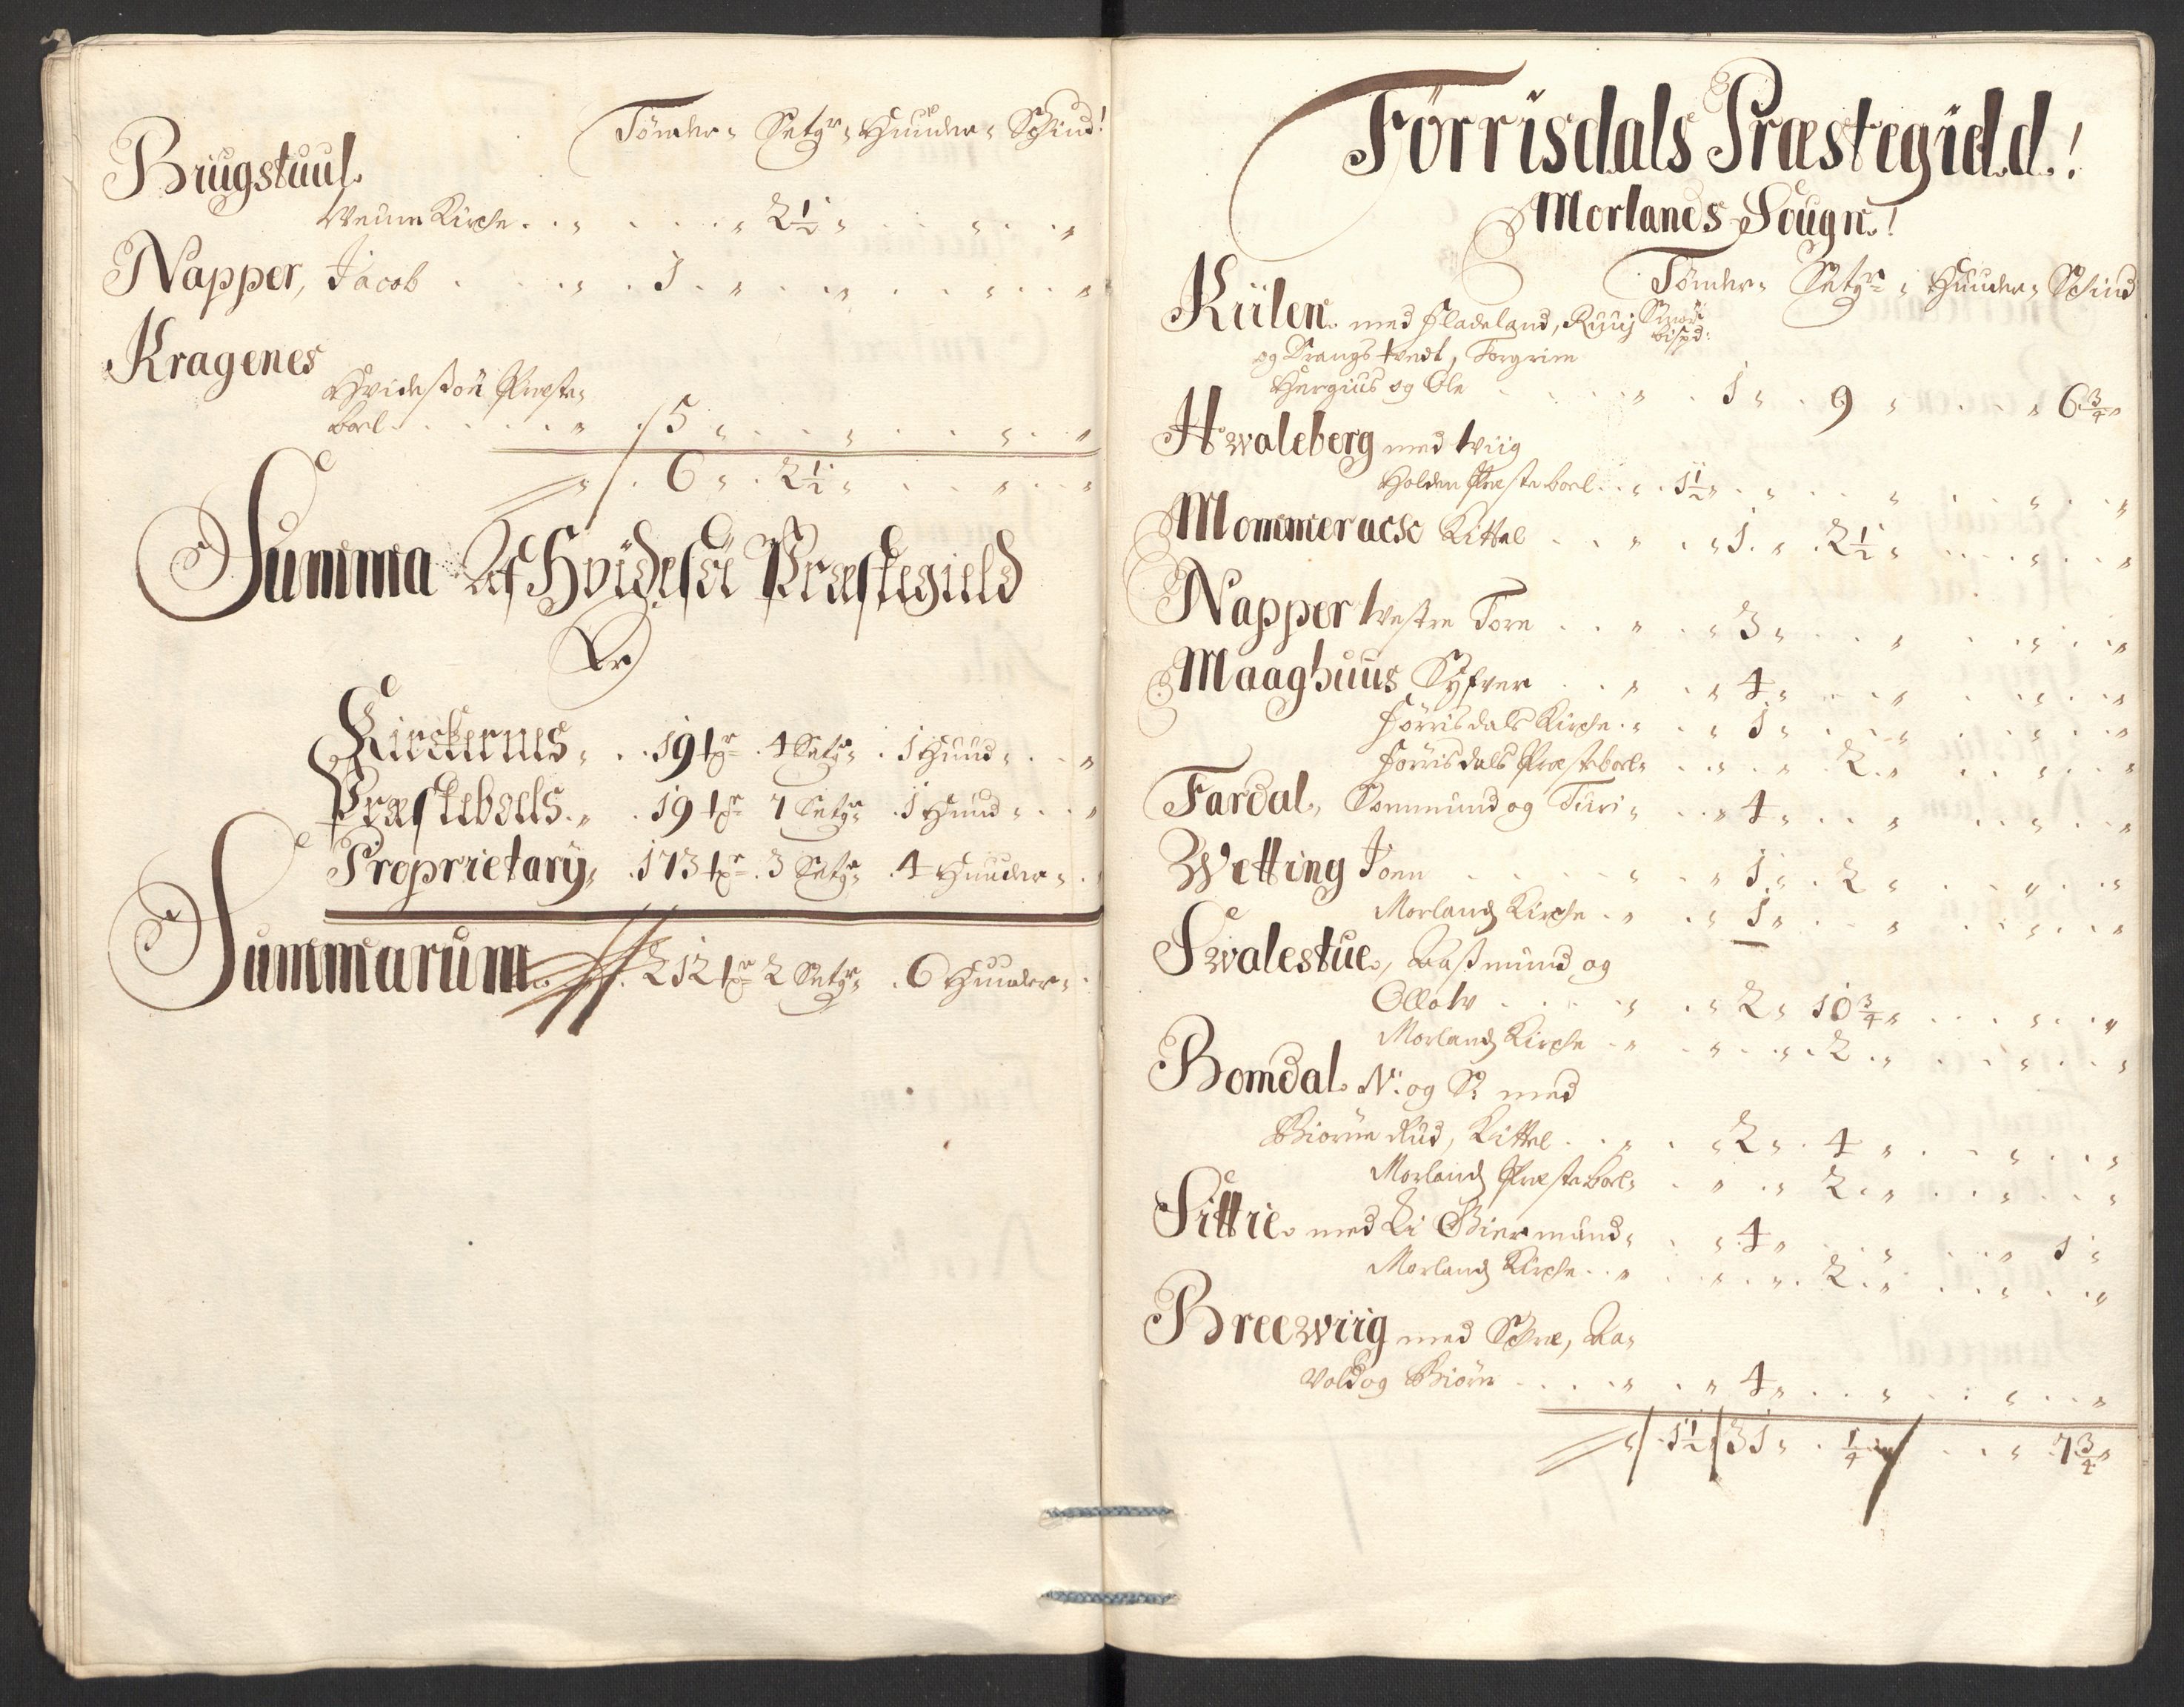 Tønder, Setgr, Huuder, Schind!
Brugstuul.
Weum Kirche . . „ . . . . „ 2½ „ . . „ . . „
Napper, Jacob . . . „ . 1 . „ . . „ . . „ . . „
Kragenes
Hvidesøe Præste-
boel . . . . . „ . 5 „ . . „ . . „ . . „
„ . 6 „ . 2½ „ . . „ . . „
Summa Af Hvidesøe Præstegield
Er
Kirckernes, . . 19 tr . 4 Setgr, . 1 Huud, . . „
Præsteboels. „ . 19 tr 7 Setgr, . 1 Huud, . . „
Proprietary, . 173 tr . 3 Setgr, . 4 Huuder, .
Summarum . 212 tr 2 Setgr, . 6 Huuder, .
Førrisdals Præstegield.!
Morlands Sougn.!
Tønder, Setgr, Huuder, Schind
Kiilen. med Fladeland, Ruuj Smør bispd:
og Drangstvedt, Torgrim
Hergius og Ole . . . . „ . 1 „ . 9 „ . . „ 6¾ „
Hwaleberg med Wiig
Holden Præsteboel . . „ . 1½ „ . „ . . „ . . „ . . „
Mommerack Kittel . . „ . „ 1 . „ . 2½ „ . . . „ . . „
Napper Westre Tore . . „ . „ 3 „ . . . „ . . „ . . „
Maaghuus Syfver . . „ . „ 4 „ . . . „ . . „ . . „
Førrisdals Kirche . „ . . „ 1 „ . . . „ . . „ . . „
Førrisdals Præsteboel, . . „ . „ . 2 . „ . . „ . . „
Fardal, Sommund og Turi, . . „ 4 „ . . . „ . . „ . . „
Wetting Joen . . . . „ . „ 1 „ . 2 „ . . „ . . „
Morlands Kirche . „ . „ 1 „ . . „ . . „ . . „
Swalestue, Aasmund og
Ollow . . . . „ . „ 2 „ 10¾ „ . . . „ . . „
Morlands Kirche . „ . „ . . „ . 2 . „ . . „ . . „
Bomdal. N: og S: med
Biørnerud, Kittel . . „ . „ 2 „ . 4 „ . . „ . . „
Morlands Præsteboel, . „ . „ 2 . „ . . „ . . „
Sittie. med Li Giermund, . „ 4 „ . . . „ . . . „ 1 „
Morlands Kirche . . „ . „ . „ . 2 . „ . . „ . . „
Breewiig med Schræ, Aa-
vold og Biørn . . . . „ . „ 4 „ . . . „ . . „ . . „
„ . 1½ 31 „ . ¼ . . „ 7¾ „